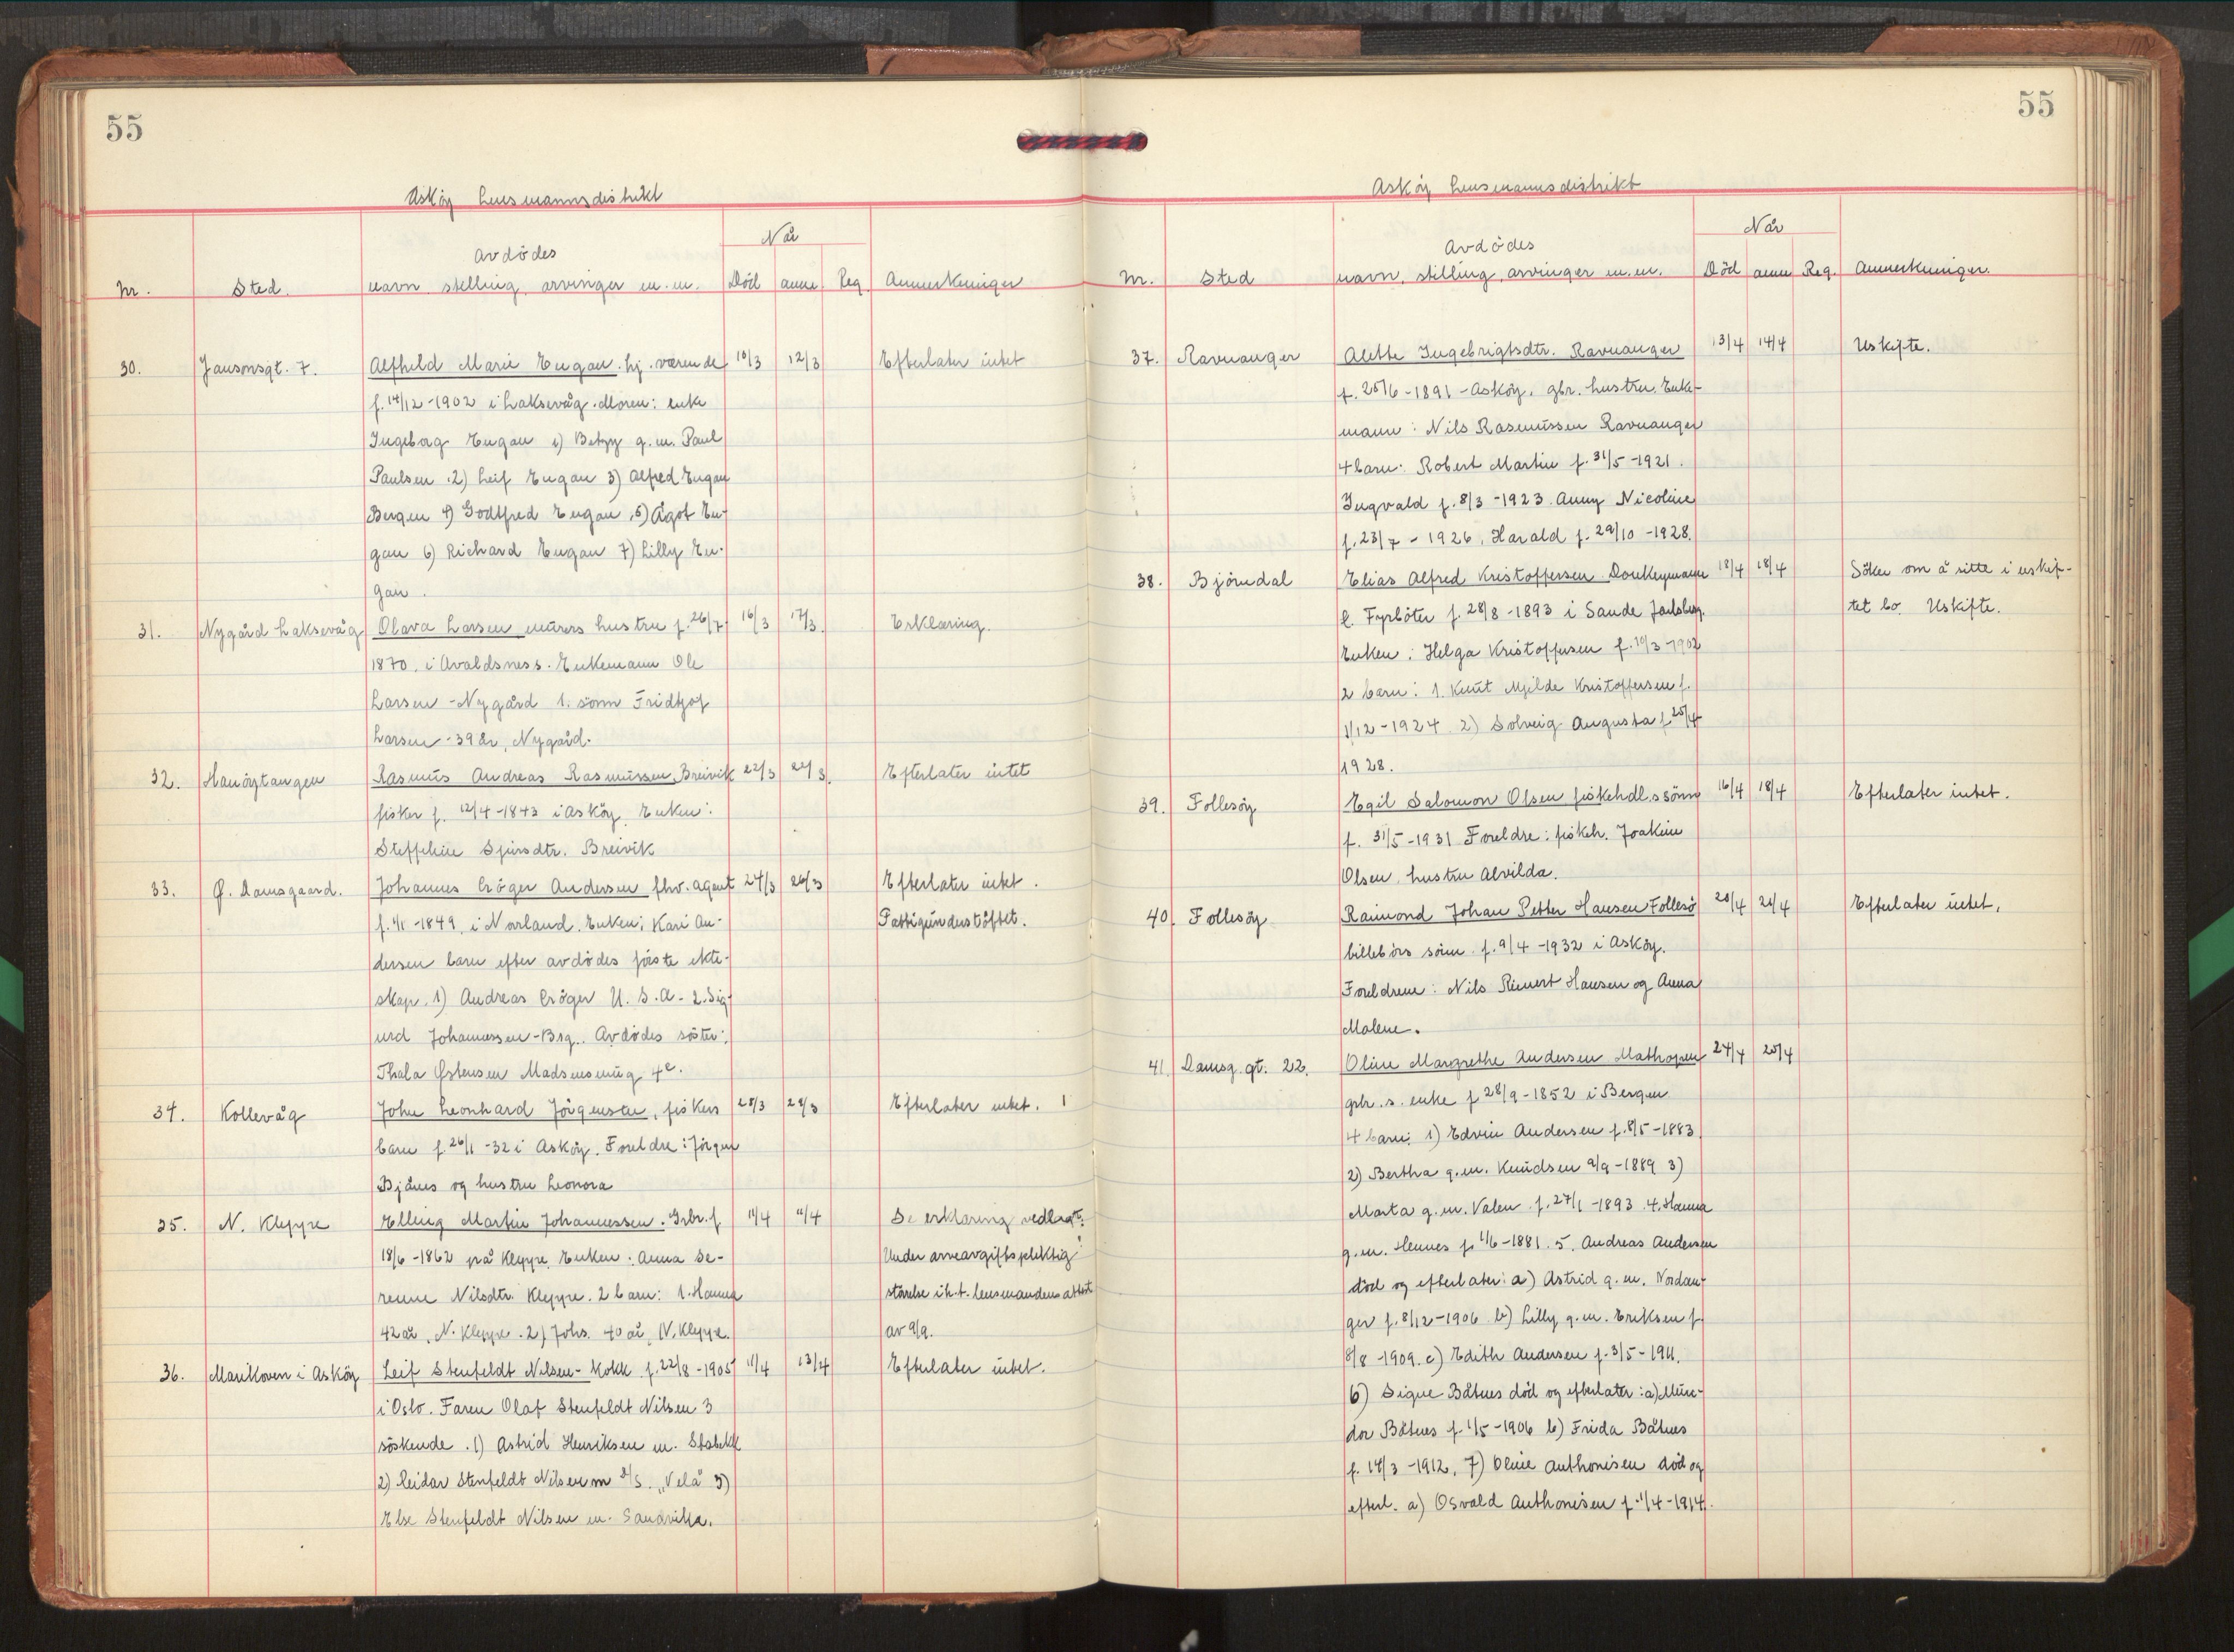 55
Asköy lensmannsdistrikt
Når
Avdödes
Nr. Sted. navn stilling, arvinger m. m. Död anm. Reg. Anmerkninger
30. Jansonsgt. 7. Alfhild Marie Eugan. hj. værende 10/3 12/3 Efterlater intet
f. 14/12-1902 i Laksevåg. Moren: enke
Ingeborg Eugan 1) Betzy g. m. Paul
Paulsen. 2) Leif Eugan 3) Alfred Eugan
Bergen 4) Godtfred Eugan, 5) Ågot Eu-
gan 6) Richard Eugan 7) Lilly Eu-
gan.
31. Nygård Laksevåg Olava Larsen murers hustru f. 26/7- 16/3 17/3. Erklæring.
1870. i Avaldsness. Enkemann Ole
Larsen - Nygård 1. sönn Fridtjof
Larsen - 39 år, Nygård.
32. Hanöytangen Rasmus Andreas Rasmussen, Breivik 22/3 22/3. Efterlater intet
fisker f. 12/4-1843 i Asköy. Enken:
Steffeline Sjursdtr. Breivik
33. Ø. Damsgaard. Johannes Cröger Andersen fhv. agent 24/3 26/3 Efterlater intet.
f. 4/1-1849, i Norland. Enken: Kari An- Fattigunderstöttet.
dersen barn efter avdödes förste ekte-
skap. 1) Andreas Cröger U. S. A. - 2. Sig-
urd Johannessen - Brg. Avdödes söster:
Thala Østensen Madsensmug 4c.
34. Kollevåg John Leonhard Jörgensen, fiskers 28/3 28/3 Efterlater intet.
barn f 26/1-32 i Asköy. Foreldre: Jörgen
Bjånes og hustru Leonora
35. N. Kleppe Elling Martin Johannessen. Grbr. f. 11/4 11/4 Se erklæring vedlagt.
18/6-1862 på Kleppe. Enken: Anna Se- Under arveavgiftspliktig
renne Nilsdtr. Kleppe. 2 barn: 1. Hanna störrelse i h. t. lensmandens attest
42 år, N. Kleppe. 2) Johs. 40 år, N. Kleppe. av 9/9.
36. Marikoven i Asköy Leif Stenfeldt Nilsen - Kokk f. 22/8-1905 11/4 13/4 Efterlater intet.
i Oslo. Faren Olaf Stenfeldt Nilsen 3
söskende. 1) Astrid Henriksen m. Stabekk
2) Reidar Stenfeldt Nilsen m D/S. "Vela" 3)
Else Stenfeldt Nilsen m. Sandvika.
55
Asköy lensmannsdistrikt
Når
Avdödes
Nr. Sted navn, stilling, arvinger m. m. Död anm Reg. Anmerkninger.
37. Ravnanger Alette Ingebrigtsdtr. Ravnanger 13/4 14/4 Uskifte.
f. 25/6-1891 - Asköy. gbr. hustru. Enke-
mann: Nils Rasmussen Ravnanger
4 barn: Robert Martin f. 31/5-1921.
Ingvald f. 8/3-1923. Anny Nicoline
f. 23/7-1926, Harald f. 29/10-1928.
38. Björndal Elias Alfred Kristoffersen Donkeymann 18/4 18/4 Söker om å sitte i uskif-
e. Fyrböter f. 28/8-1893 i Sande Jarlsberg. tet bo. Uskifte.
Enken: Helga Kristoffersen f. 10/3-1902
2 barn: 1. Knut Mjilde Kristoffersen f.
1/12-1924. 2) Solveig Augusta f. 25/4
1928.
39. Follesöy Egil Salomon Olsen fiskehdl.s sönn 16/4 18/4 Efterlater intet.
f. 31/5-1931 Foreldre: fiskeh. Joakim
Olsen, hustru Alvilda.
40. Follesöy Raimond Johan Petter Hansen Follesö 20/4 21/4 Efterlater intet.
billebörs sönn. f. 9/4-1932 i Asköy.
Foreldrene: Nils Rienert Hansen og Anna
Malene.
41. Damsg. gt. 22. Oline Margrethe Andersen Mathopen 24/4 25/4
gbr. s. enke f 28/9-1852 i Bergen
4 barn: 1) Edvin Andersen f. 8/5-1883
2) Bertha g. m. Knudsen 9/9-1889 3)
Marta g. m. Valen f. 27/1-1893. 4. Hanna
g. m. Hennes f. 1/6-1881. 5. Andreas Andersen
död og efterlater: a) Astrid g. m. Nordan-
ger f. 8/12-1906 b) Lilly g. m. Eriksen f.
8/8-1909. c) Edith Andersen f. 3/5-1911.
6) Signe Båtnes död og efterlater: a) Mun-
dor Båtnes f. 1/5-1906 b) Frida Båtnes
f. 14/3-1912, 7) Oline Anthonisen död og
efterl. a) Osvald Anthonisen f. 1/4-1914.